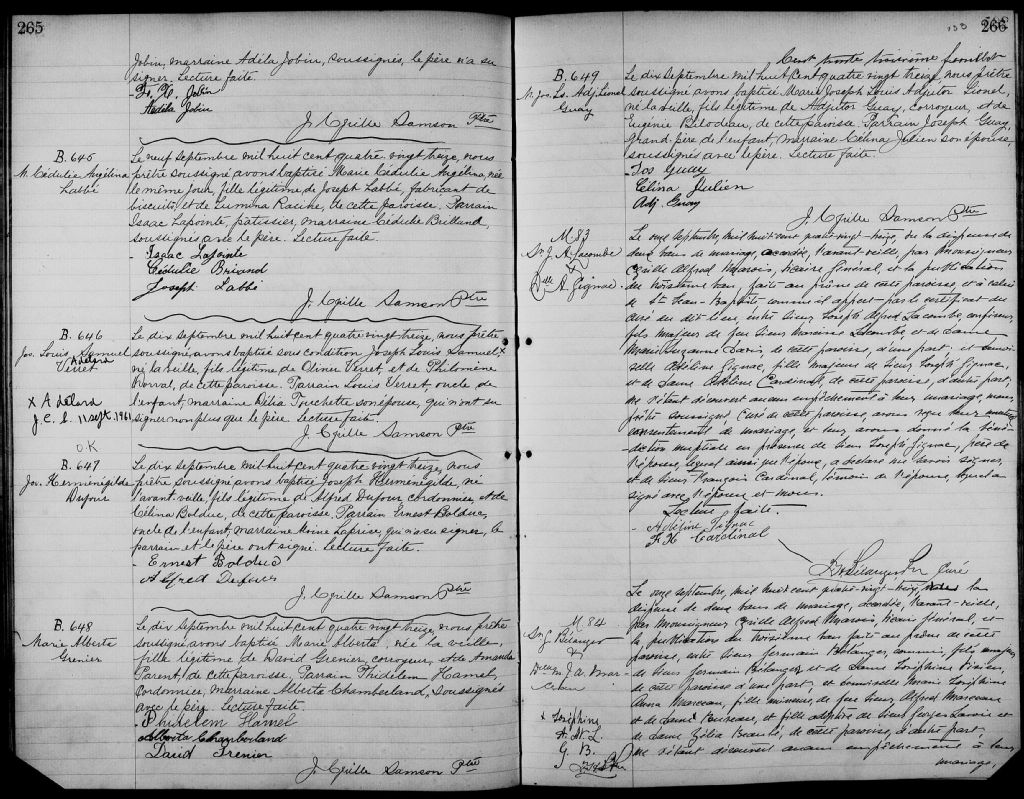 265
Jobin, marraine Adéla Jobin, soussignés, le père n'a su
signer. Lecture faite.
Fr. X. Jobin
Adéla Jobin
J. Cyrille Samson Ptre
B. 645
M. Cédulie Angélina
Labbé
Le neuf septembre mil huit cent quatre vingt treize, nous
prêtre soussigné avons baptisé Marie Cédulie Angélina, née
le même jour, fille légitime de Joseph Labbé, fabricant de
biscuits, et de Lumina Racine, de cette paroisse. Parrain
Isaac Lapointe, pâtissier, marraine Cédulie Briand,
soussignés avec le père. Lecture faite.
Isaac Lapointe
Cédulie Briand
Joseph Labbé
J. Cyrille Samson Ptre
B. 646
Jos. Louis Samuel
Adelard
Verret
X Adelard
J.C. L. 11 sept. 1961
O.K
Le dix septembre mil huit cent quatre vingt treize, nous prêtre
soussigné, avons baptisé sous condition Joseph Louis Samuel X
né la veille, fils légitime de Oliver Verret, et de Philomène
Dorval, de cette paroisse. Parrain Louis Verret, oncle de
l'enfant, marraine Délia Turchette son épouse, qui n'ont su
signer non plus que le père. Lecture faite.
J. Cyrille Samson Ptre
B. 647
Jos. Herménégilde
Dufour
Le dix septembre mil huit cent quatre vingt treize, nous
prêtre soussigné avons baptisé Joseph Herménégilde, né
l'avant veille, fils légitime de Alfred Dufour cordonnier, et de
Célina Bolduc, de cette paroisse. Parrain Ernest Bolduc,
oncle de l'enfant, marraine Laprise, qui n'a su signer, le
parrain et le père ont signé. Lecture faite.
Ernest Bolduc
J. Cyrille Samson Ptre
B. 648
Marie Alberta
Grenier
Le dix septembre mil huit cent quatre vingt treize, nous prêtre
soussigné avons baptisé Marie Alberta, née la veille,
fille légitime de David Grenier, corroyeur, et de Amanda
Parent, de cette paroisse, Parrain Phidelem Hamel,
cordonnier, Marraine Alberta Chamberland, soussignés
avec le père. Lecture faite.
Phidelem Hamel
Alberta Chamberland
David Grenier
J. Cyrille Samson Ptre
266
133
Cent trente troisième feuillet
B. 649
M. Jos. Ls. Adj. Lionel
Guay
Le dix septembre mil huit cent quatre vingt treize, nous prêtre
soussigné avons baptisé Marie Joseph Louis Adjutor Lionel,
né la veille, fils légitime de Adjutor Guay, corroyeur, et de
Eugénie Bilodeau, de cette paroisse. Parrain Joseph Guay,
grand père de l'enfant, marraine Célina Julien son épouse,
soussignés avec le père. Lecture faite.
Jos Guay
Célina Julien
Adj. Guay
J. Cyrille Samson Ptre
M. 83
Sr J. A. Lacombe
&
Dlle A. Gignac
Le onze septembre, mil huit cent quatre-vingt-treize, vu la dispense de
deux bans de mariage, accordée, l'avant-veille, par Monseigneur
Cyrille Alfred Marois, Vicaire Général, et la publication
du troisième ban, faite au prône de cette paroisse et à celui
de St Jean-Baptiste comme il appert par le certificat du
curé du dit lieu, entre Sieur Joseph Alfred Lacombe,
fils majeur de feu Sieur Lacombe, et de Dame
Marie Suzanne Savoie, de cette paroisse, d'une part, et Demoi-
selle Adéline Gignac, fille majeure de Sieur Joseph Gignac,
et de Dame Adéline Cardinal, de cette paroisse, d'autre part,
ne s'étant découvert aucun empêchement à leur mariage, nous,
prêtre soussigné Curé de cette paroisse, avons reçu leur mutuel
consentement de mariage, et leur avons donné la béné-
diction nuptiale en présence de Sieur Joseph Gignac, père de
l'épouse, lequel ainsi que l'époux, a déclaré ne savoir signer,
et de Sieur François Cardinal, témoin de l'épouse, lequel a
signé avec l'épouse et nous.
Lecture faite.
Adéline Gignac
F. X Cardinal
F. X Bélanger Ptre Curé
M. 84
Sr G. Bélanger
&
Delle M. J. A. Mar-
ceau
x Joséphine
G. B.
Le onze septembre, mil huit cent quatre-vingt-treize, vu la
dispense de deux bans de mariage, accordée, l'avant-veille,
par Monseigneur Cyrille Alfred Marois, Vicaire Général, et
la publication du troisième ban fait au prône de cette
paroisse, entre Sieur Germain Bélanger, commis, fils majeur
de Sieur Germain Bélanger, et de Dame Joséphine Vézina,
de cette paroisse d'une part, et Demoiselle Marie Joséphine
Anna Marceau, fille mineure, de feu Sieur Alfred Marceau
et de Dame Bureau, et fille adoptive de Sieur Georges Savoie et
de Dame Zélia Beaulé, de cette paroisse, d'autre part,
ne s'étant découvert aucun empêchement à leur
mariage,